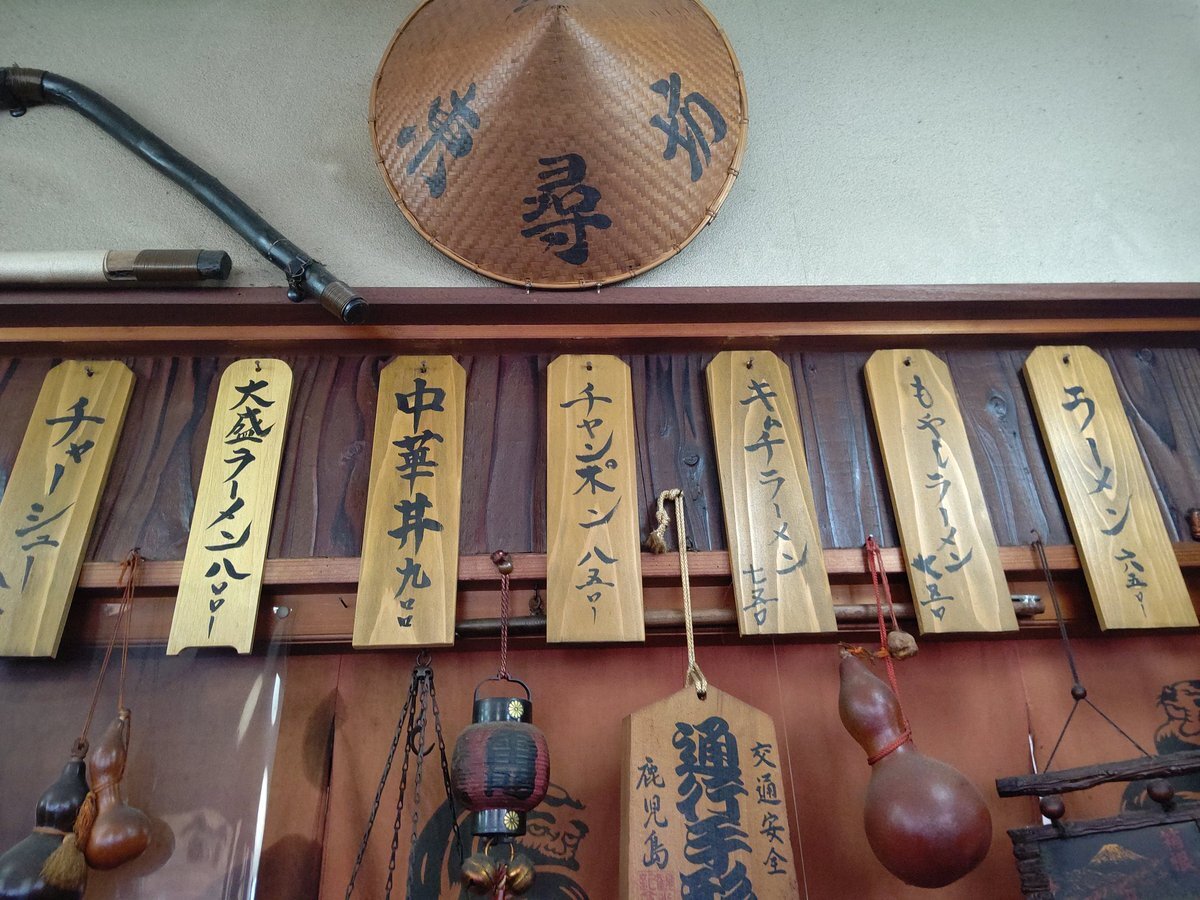 尋
ラーメン 六五〇ー
もやしラーメン 七五〇
キムチラーメン 七五〇
チャンポン 八五〇ー
中華丼 九〇〇
大盛ラーメン 八〇〇ー
チャーシュー
交通安全
通行手形
鹿児島